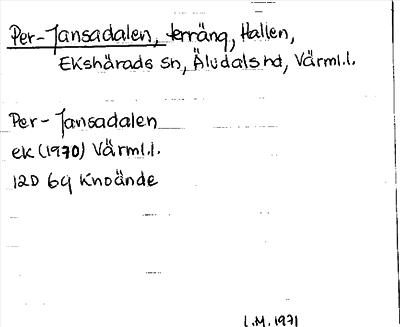 Per-Jansadalen, terräng, Hallen,
Ekshärads sn, Äludals hd, Värml.l.
Per-Jansadalen
ek (1970) Värml.l.
12D 6g Knoände
L.M. 1971